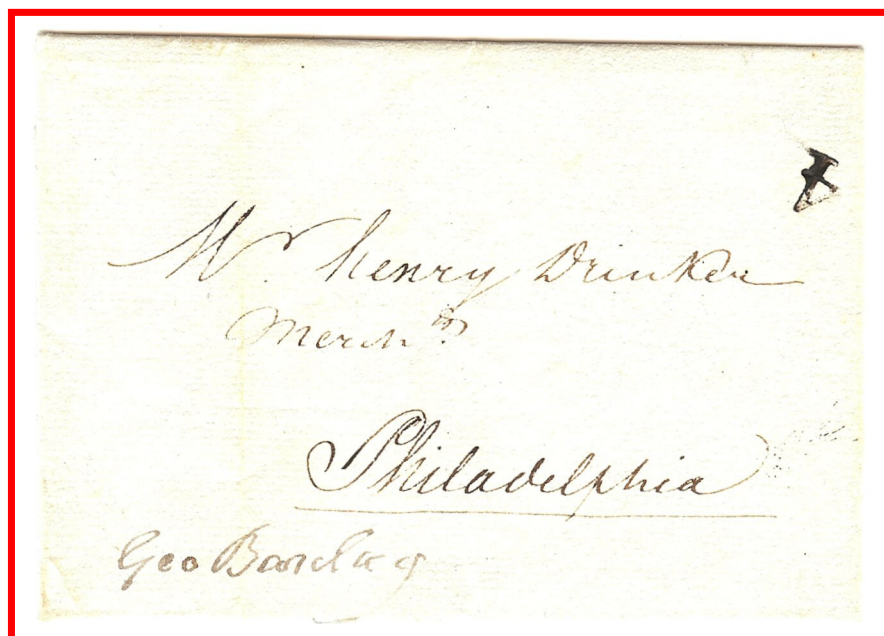 Mr. Henry Drinker
Merch.t
Philadelphia
Geo Barclay